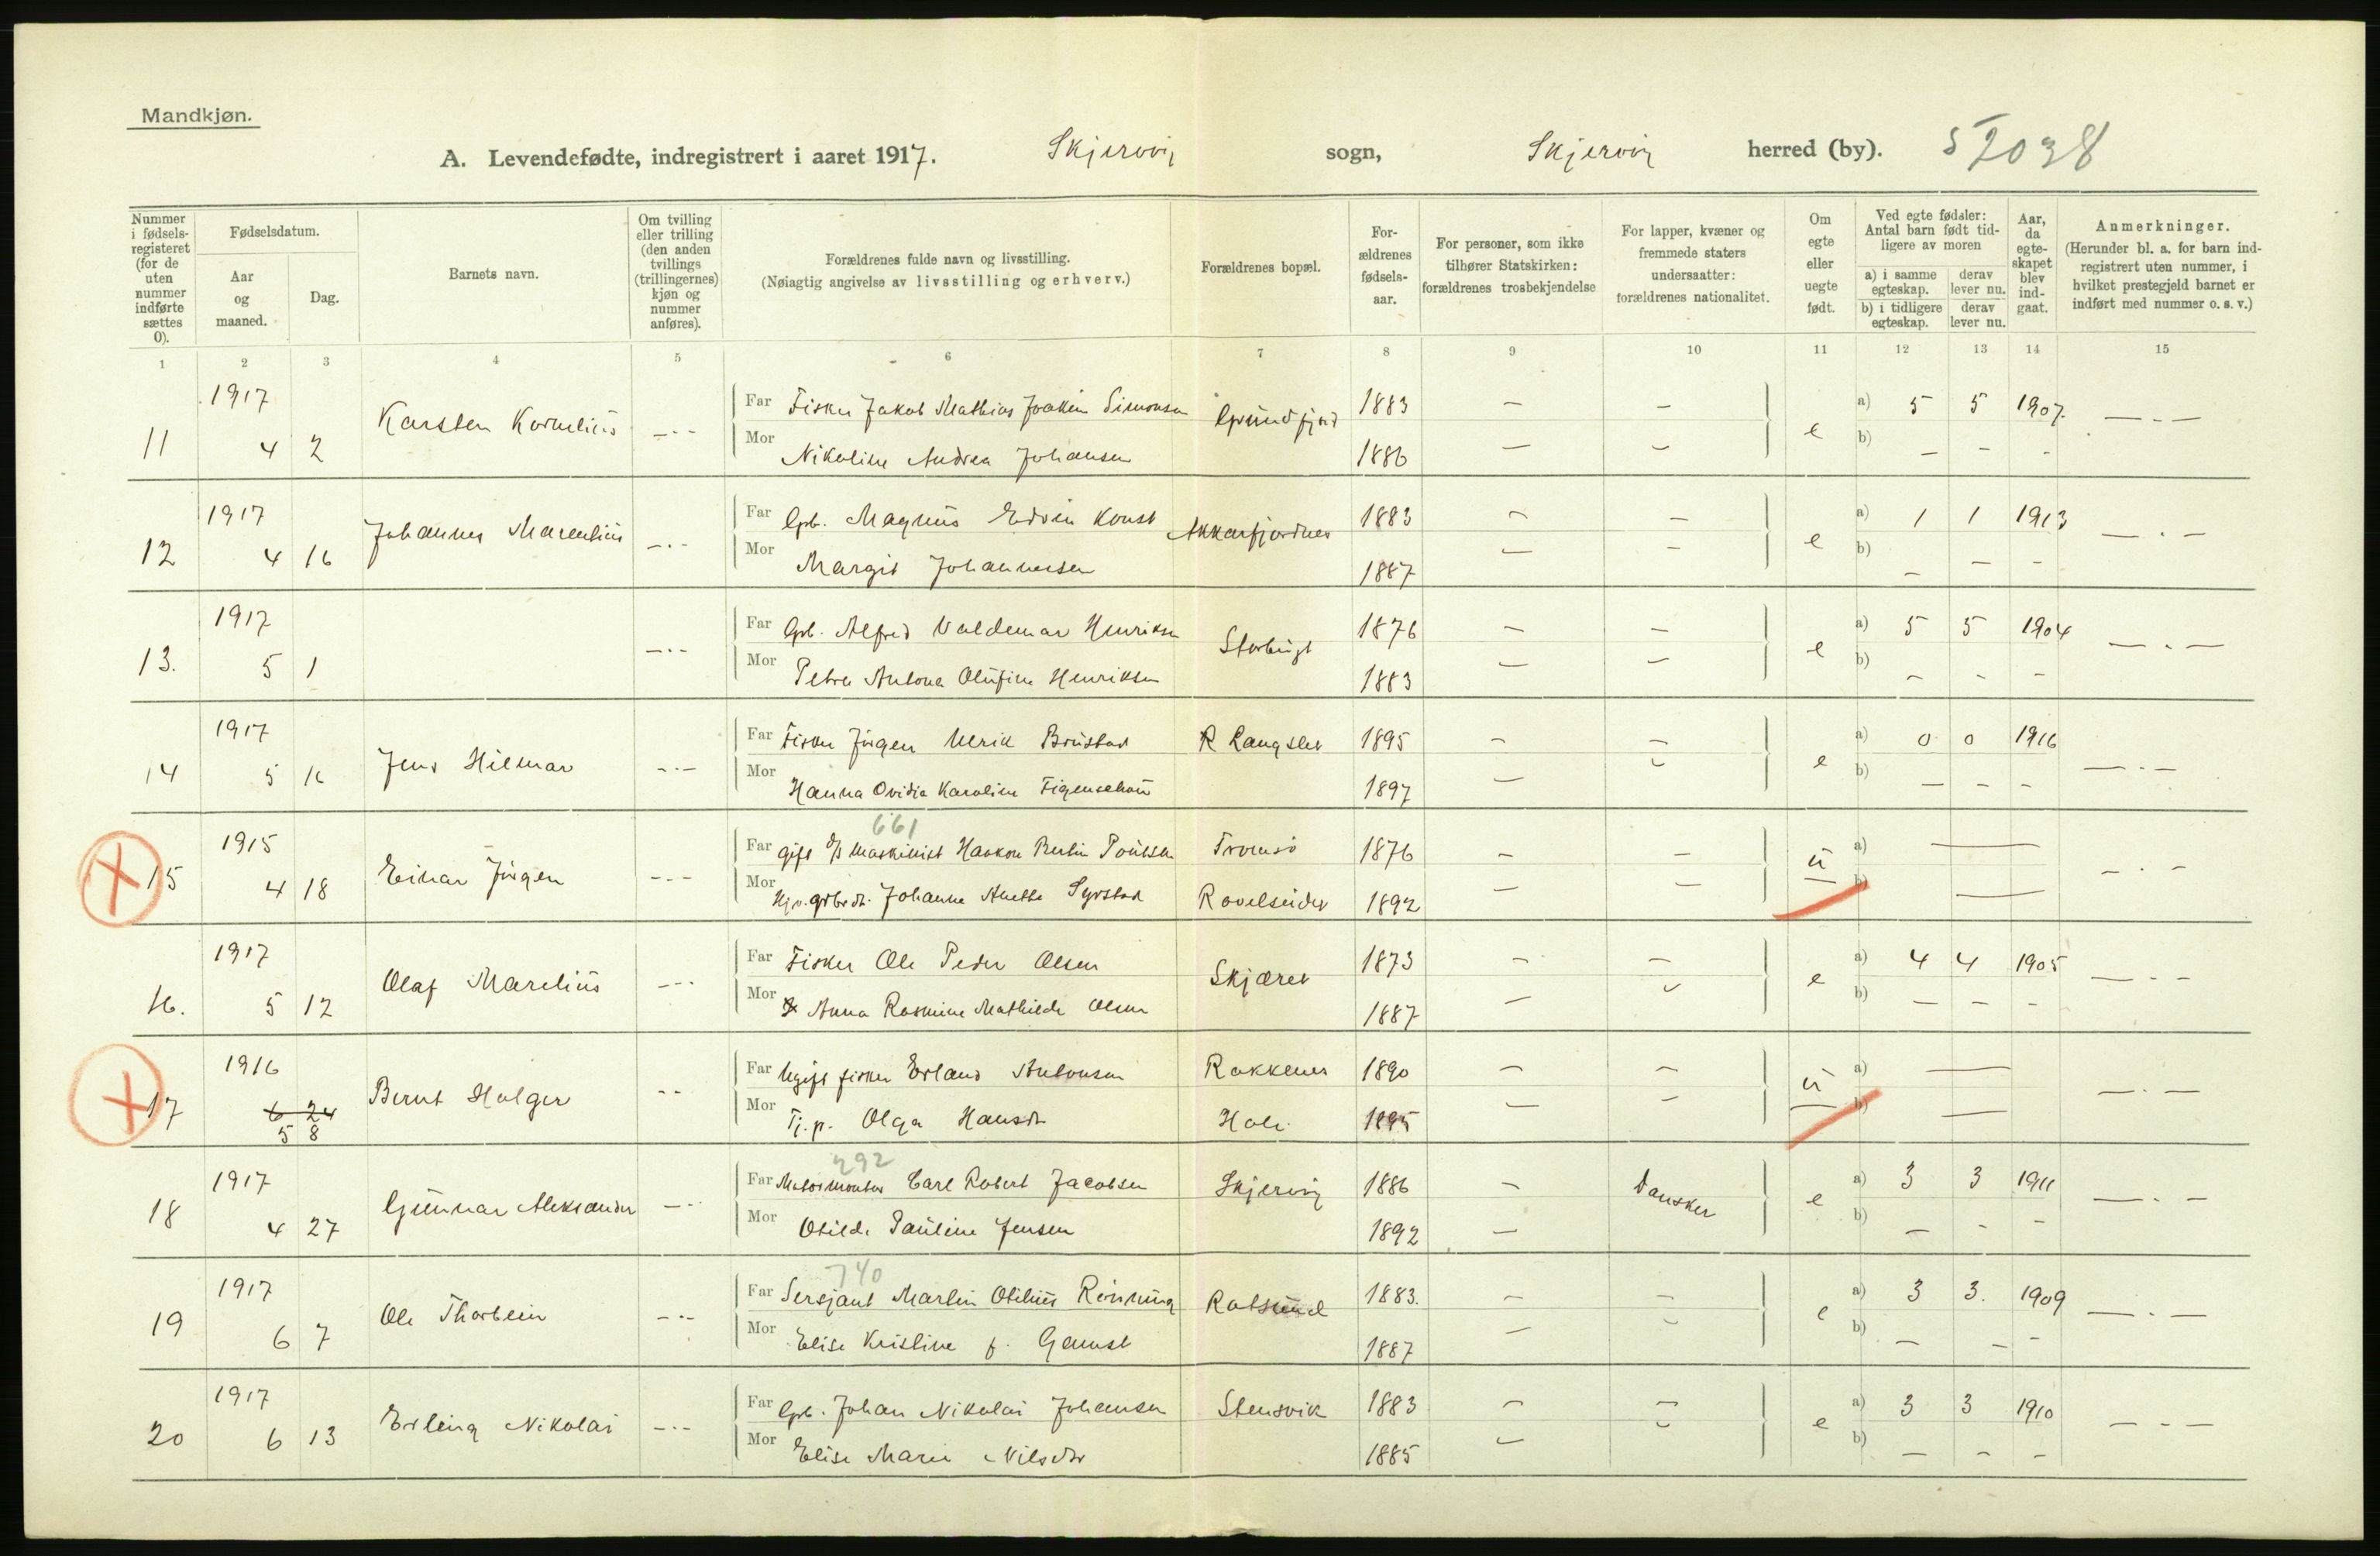 Mandkjøn.
A. Levendefødte, indregistrert i aaret 1917. Skjervøy sogn, Skjervøy herred (by). 5 2038
Nummer i fødsels-registeret (for de uten nummer indførte sættes 0).
Fødselsdatum.
Aar og maaned.
Dag.
Barnets navn.
Om tvilling eller trilling (den anden tvillings (trillingernes) kjøn og nummer anføres).
Forældrenes fulde navn og livsstilling.
(Nøiagtig angivelse av livsstilling og erhverv.)
Forældrenes bopæl.
For-ældrenes fødsels-aar.
For personer, som ikke tilhører Statskirken: forældrenes trosbekjendelse
For lapper, kvæner og fremmede staters undersaatter: forældrenes nationalitet.
Om egte eller uegte født.
Ved egte fødsler: Antal barn født tid-ligere av moren
a) i samme egteskap. derav lever nu.
b) i tidligere egteskap. derav lever nu.
Aar, da egte-skapet blev ind-gaat.
Anmerkninger.
(Herunder bl. a. for barn ind-registrert uten nummer, i hvilket prestegjeld barnet er indført med nummer o. s. v.)
1 2 3 4 5 6 7 8 9 10 11 12 13 14 15
1917 Karsten Kornelius Far Fisker Jakob Mathias Joakim Simonsen Grundfjord 1883 — — a) 5 5 1907.
11 4 2 Mor Nikoline Andrea Johansen 1886 — — e b) — — -
1917 Johannes Marentius Far Grb. Magnus Edvin Konst Akkarfjordnes 1883 — — a) 1 1 1913
12 4 16 Mor Margit Johannesen 1887 — — e b) — — -
1917 Far Grb. Alfred Valdemar Henriksen Storbugt 1876 — — a) 5 5 1904
13. 5 1 Mor Petra Antona Olufine Henriksen 1883 — — e b) - - -
1917 Jens Hilmar Far Fisker Jørgen Ulrik Brustad R Langslet 1895 — — a) 0 0 1916
14 5 16 Mor Hanna Ovidia Karoline Figenschou 1897 — — e b) — - -
661
1915 Einar Jørgen Far gift d/s maskinist Haakon Bertin Poulsen Tromsø 1876 — — u a) —
15 4 18 Mor Hjv. grbrdt. Johanne Anette Syrstad Ravelseidet 1892 — — b) —
1917 Olaf Marelius Far Fisker Ole Peder Olsen Skjæret 1873 — — a) 4 4 1905
16. 5 12 Mor Anna Rasmine Mathilde Olsen 1887 — — e b) — - -
1916 Bernt Holger Far Ugift fisker Erland Antonsen Rakkenes 1890 — — u a) —
17 6 24 Mor Tj.p. Olga Hansdtr Hole 1895 — — b) —
5 8
292
1917 Gunnar Aleksander Far Motormontør Carl Robert Jacobsen Skjervøy 1886 — Dansker a) 3 3 1911
18 4 27 Mor Otilde Pauline Jensen 1892 — e b) — - -
740
1917 Ole Thorbein Far Sersjant Martin Otilius Rönning Rotsund 1883. — — a) 3 3. 1909
19 6 7 Mor Elise Kristine f. Gamst 1887 — — e b) — — -
1917 Erling Nikolai Far Grb. Johan Nikolai Johansen Stensvik 1883 — — a) 3 3 1910
20 6 13 Mor Elise Marie Nilsdtr 1885 — — e b) — - -